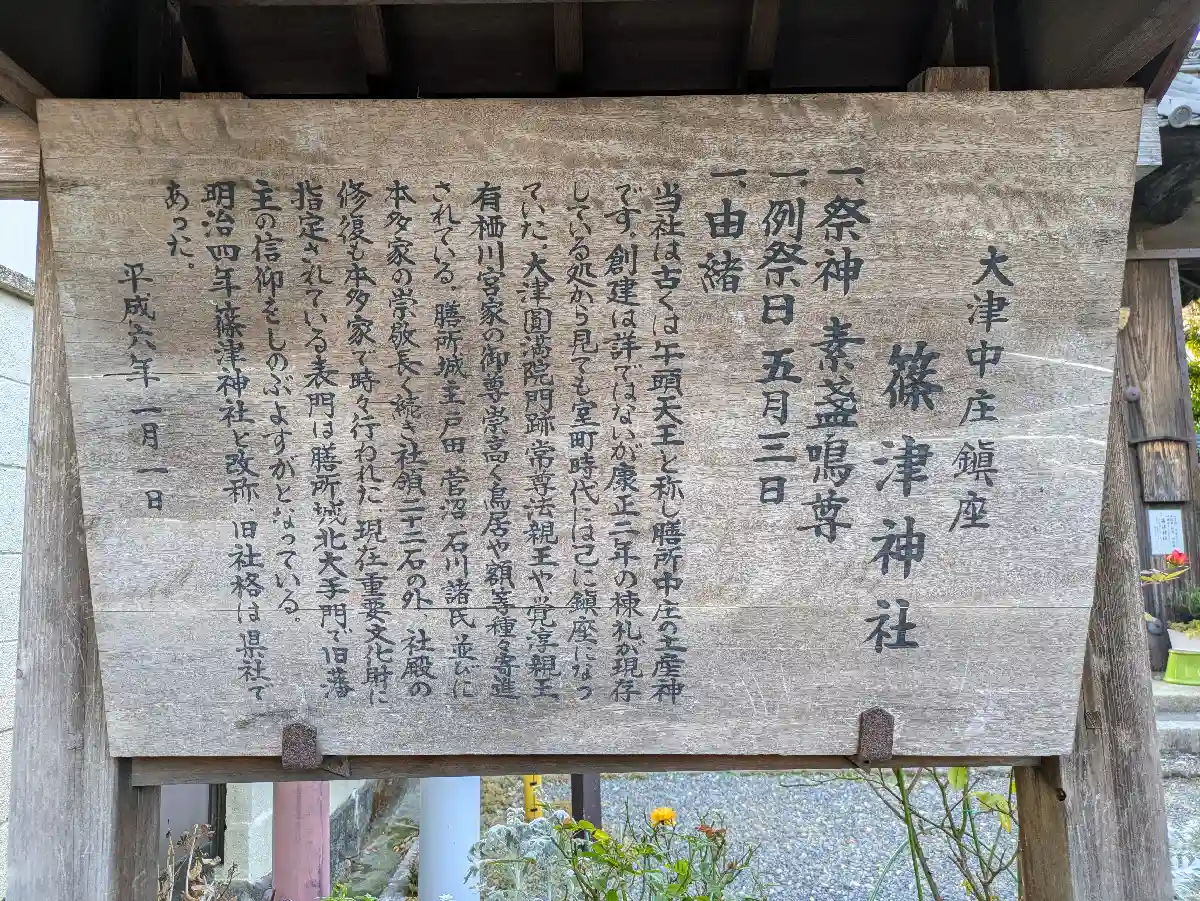 大津中庄鎮座
篠津神社
一、祭神 素盞鳴尊
一、例祭日 五月三日
一、由緒
当社は古くは午頭天王と称し膳所中庄の土産神
です。創建は詳ではないが康正二年の棟札が現存
している処から見ても室町時代には己に鎮座になっ
ていた。大津圓満院門跡常尊法親王や覚淳親王
有栖川宮家の御尊崇高く鳥居や額等種々寄進
されている。膳所城主戸田 菅沼 石川諸氏並びに
本多家の崇敬長く続き社領二十二石の外、社殿の
修復も本多家で時々行われた 現在重要文化財に
指定されている表門は膳所城北大手門で旧藩
主の信仰をしのぶよすがとなっている。
明治四年篠津神社と改称、旧社格は県社で
あった。
平成六年 一月一日